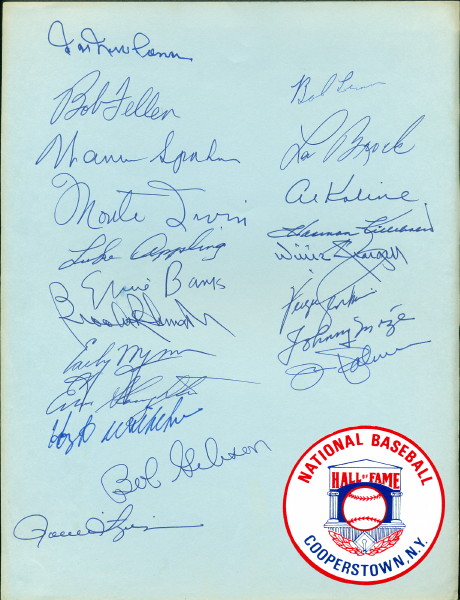 Bob Feller
Warren Spahn
Monte Irvin
Luke Appling
Ernie Banks
Early Wynn
Enos Slaughter
Hoyt Wilhelm
Bob Gibson
Bob Lemon
Lou Brock
Al Kaline
Harmon Killebrew
Willie Stargell
Johnny Mize
Jim Palmer
NATIONAL BASEBALL
HALL OF FAME
COOPERSTOWN, N.Y.